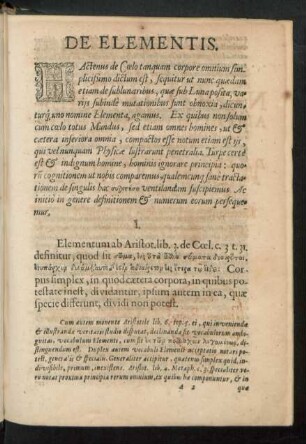 DE ELEMENTIS.
HActenus de Cœlo tanquam corpore omnium sim-
plicissimo dictum est, sequitur ut nunc quædam
etiam de sublunaribus, quæ sub Luna posita, va-
rijs subinde mutationibus sunt obnoxia, dicun-
turq; uno nomine Elementa, agamus. Ex quibus non solum
cum cœlo totus Mundus, sed etiam omnes homines, ut &
cætera inferiora omnia, compactos esse notum etiam est ijs,
qui vel nunquam Physicæ lustrarunt penetralia. Turpe certè
est & indignum homine, hominis ignorare principia: quo-
rum cognitionem ut nobis comparemus qualemcunq; sanè tractatio-
nem de singulis hac ventilandam suscipimus. Ac
initio in genere definitionem & numerum eorum perseque-
mur.
I.
Elementum ab Aristot. lib. 3. de Cœl. c. 3 t. 31.
definitur, quod sit
Cor-
pus simplex, in quod cætera corpora, in quibus po-
testate inest, dividantur, ipsum autem in ea, quæ
specie differunt, dividi non potest.
Cum autem monente Aristotele lib.
& illustrandæ veritatis studio disputat, distinguenda sit vocabulorum ambi-
guitas; vocabulum Elementi, cum sit
distinguendum est. Duplex autem vocabuli Elementi acceptatio notari pot-
est, generalis & specialis. Generaliter accipitur, quatenus simplex quid, in-
divisibile, primum, inexistens. Aristot. lib. 4. Metaph. c. 3. Specialiter ve-
rò notat proxima principia rerum omnium, ex quibus hæ componuntur, & in
A 2 quæ